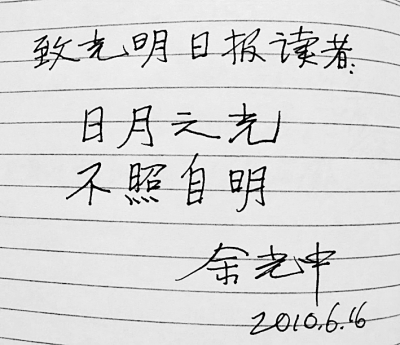 致光明日报读者:
日月之光
不照自明
余光中
2010.6.16